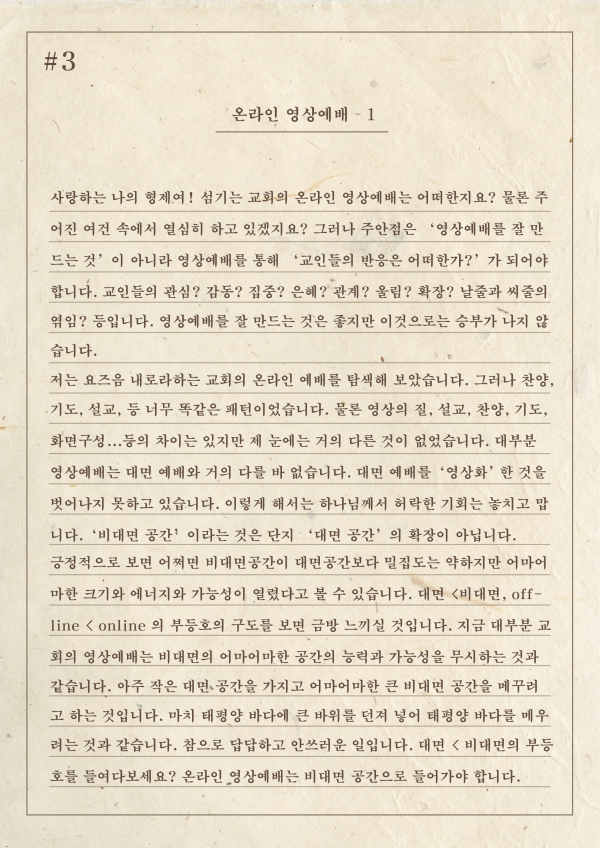 #3
온라인 영상예배 - 1
사랑하는 나의 형제여! 섬기는 교회의 온라인 영상예배는 어떠한지요? 물론 주
어진 여건 속에서 열심히 하고 있겠지요? 그러나 주안점은 ‘영상예배를 잘 만
드는 것’이 아니라 영상예배를 통해 ‘교인들의 반응은 어떠한가?’가 되어야
합니다. 교인들의 관심? 감동? 집중? 은혜? 관계? 울림? 확장? 날줄과 씨줄의
엮임? 등입니다. 영상예배를 잘 만드는 것은 좋지만 이것으로는 승부가 나지 않
습니다.
저는 요즈음 내로라하는 교회의 온라인 예배를 탐색해 보았습니다. 그러나 찬양,
기도, 설교, 등 너무 똑같은 패턴이었습니다. 물론 영상의 질, 설교, 찬양, 기도,
화면구성...등의 차이는 있지만 제 눈에는 거의 다른 것이 없었습니다. 대부분
영상예배는 대면 예배와 거의 다를 바 없습니다. 대면 예배를 ‘영상화’한 것을
벗어나지 못하고 있습니다. 이렇게 해서는 하나님께서 허락한 기회는 놓치고 맙
니다. ‘비대면 공간’이라는 것은 단지 ‘대면 공간’의 확장이 아닙니다.
긍정적으로 보면 어쩌면 비대면공간이 대면공간보다 밀집도는 약하지만 어마어
마한 크기와 에너지와 가능성이 열렸다고 볼 수 있습니다. 대면 <비대면, off-
line < online 의 부등호의 구도를 보면 금방 느끼실 것입니다. 지금 대부분 교
회의 영상예배는 비대면의 어마어마한 공간의 능력과 가능성을 무시하는 것과
같습니다. 아주 작은 대면 공간을 가지고 어마어마한 큰 비대면 공간을 메꾸려
고 하는 것입니다. 마치 태평양 바다에 큰 바위를 던져 넣어 태평양 바다를 메우
려는 것과 같습니다. 참으로 답답하고 안쓰러운 일입니다. 대면 < 비대면의 부등
호를 들여다보세요? 온라인 영상예배는 비대면 공간으로 들어가야 합니다.